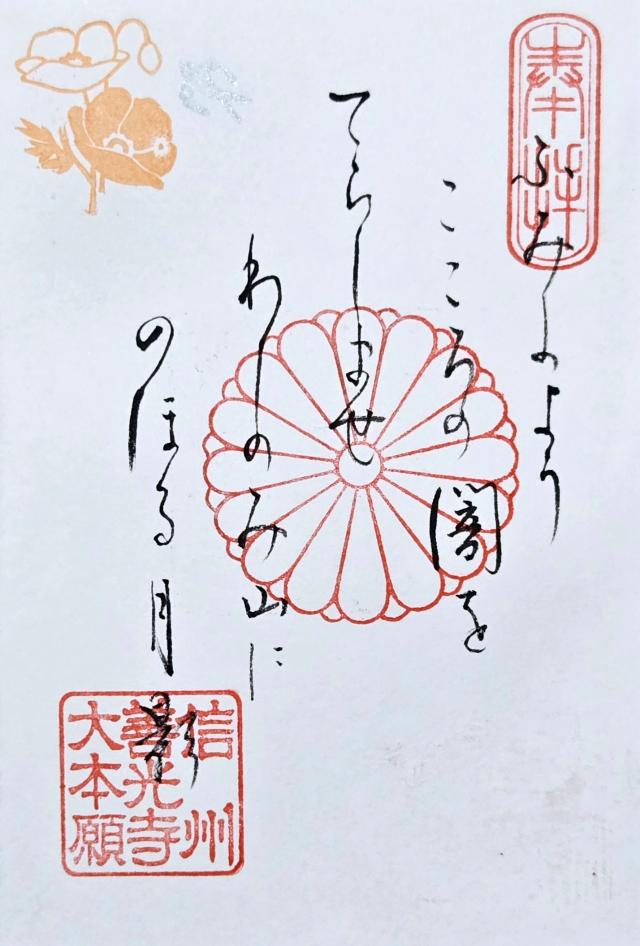 奉拝
ふみしより
こころの闇を
てらしませ
わしのみ山に
のほる月影
信州
善光寺
大本願